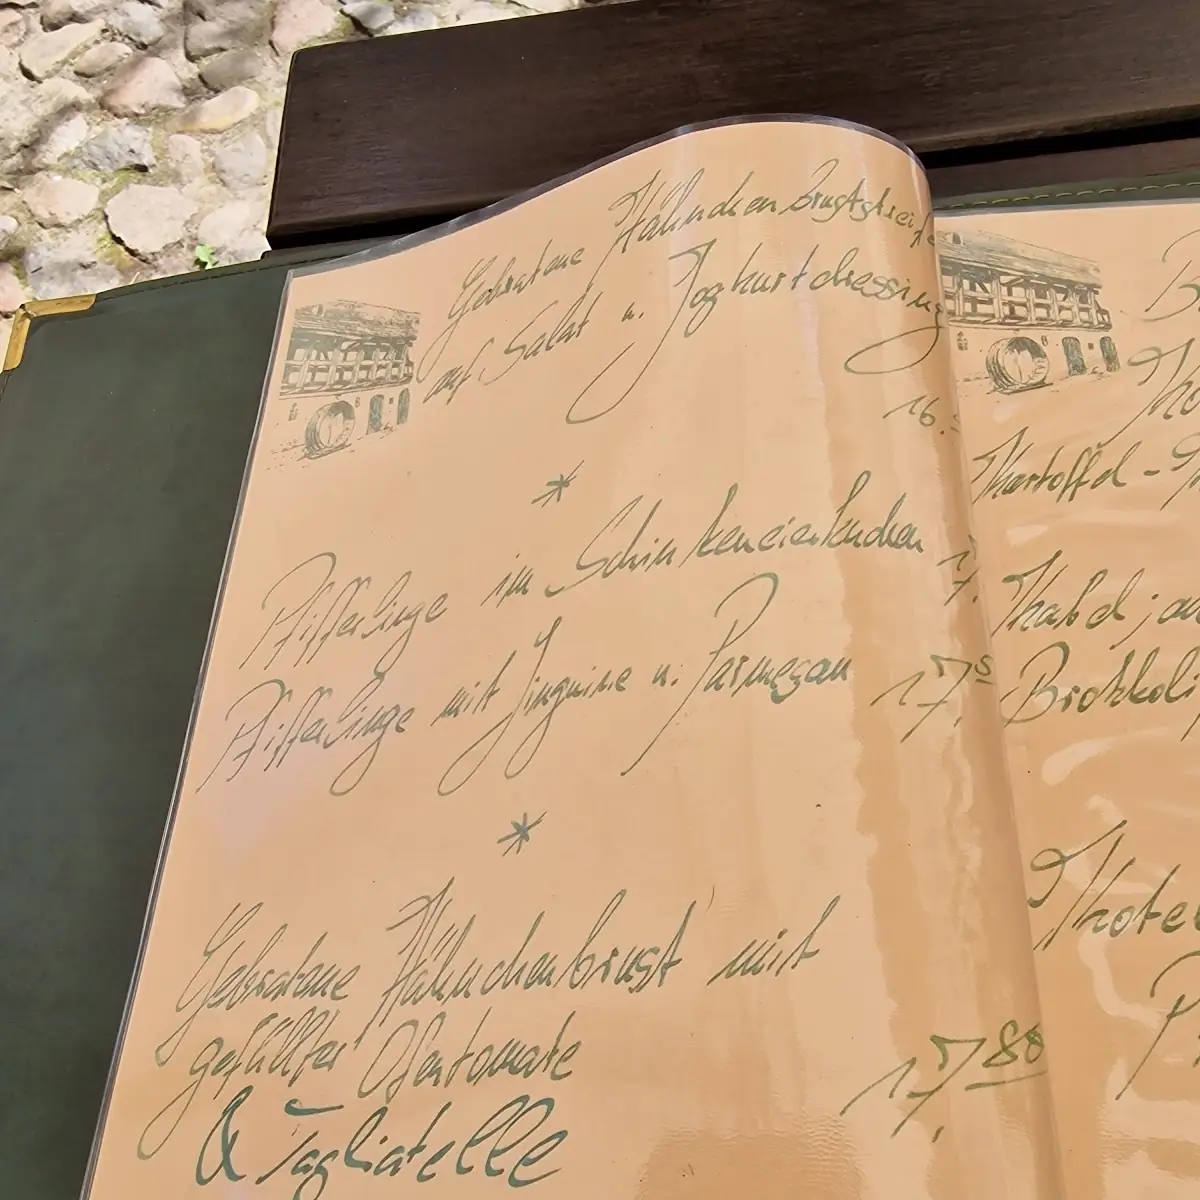 Gebratene Hähnchenbruststreife
auf Salat u. Joghurtdressing
16.
*
Pfifferlinge im Schinkeneierkuchen 17.
Pfifferlinge mit Linguine u. Parmesan 17.5
*
Gebratene Hähnchenbrust mit
gefüllter Ofentomate
& Tagliatelle 17.80
Kartoffel-
Kabelja
Brokkoli